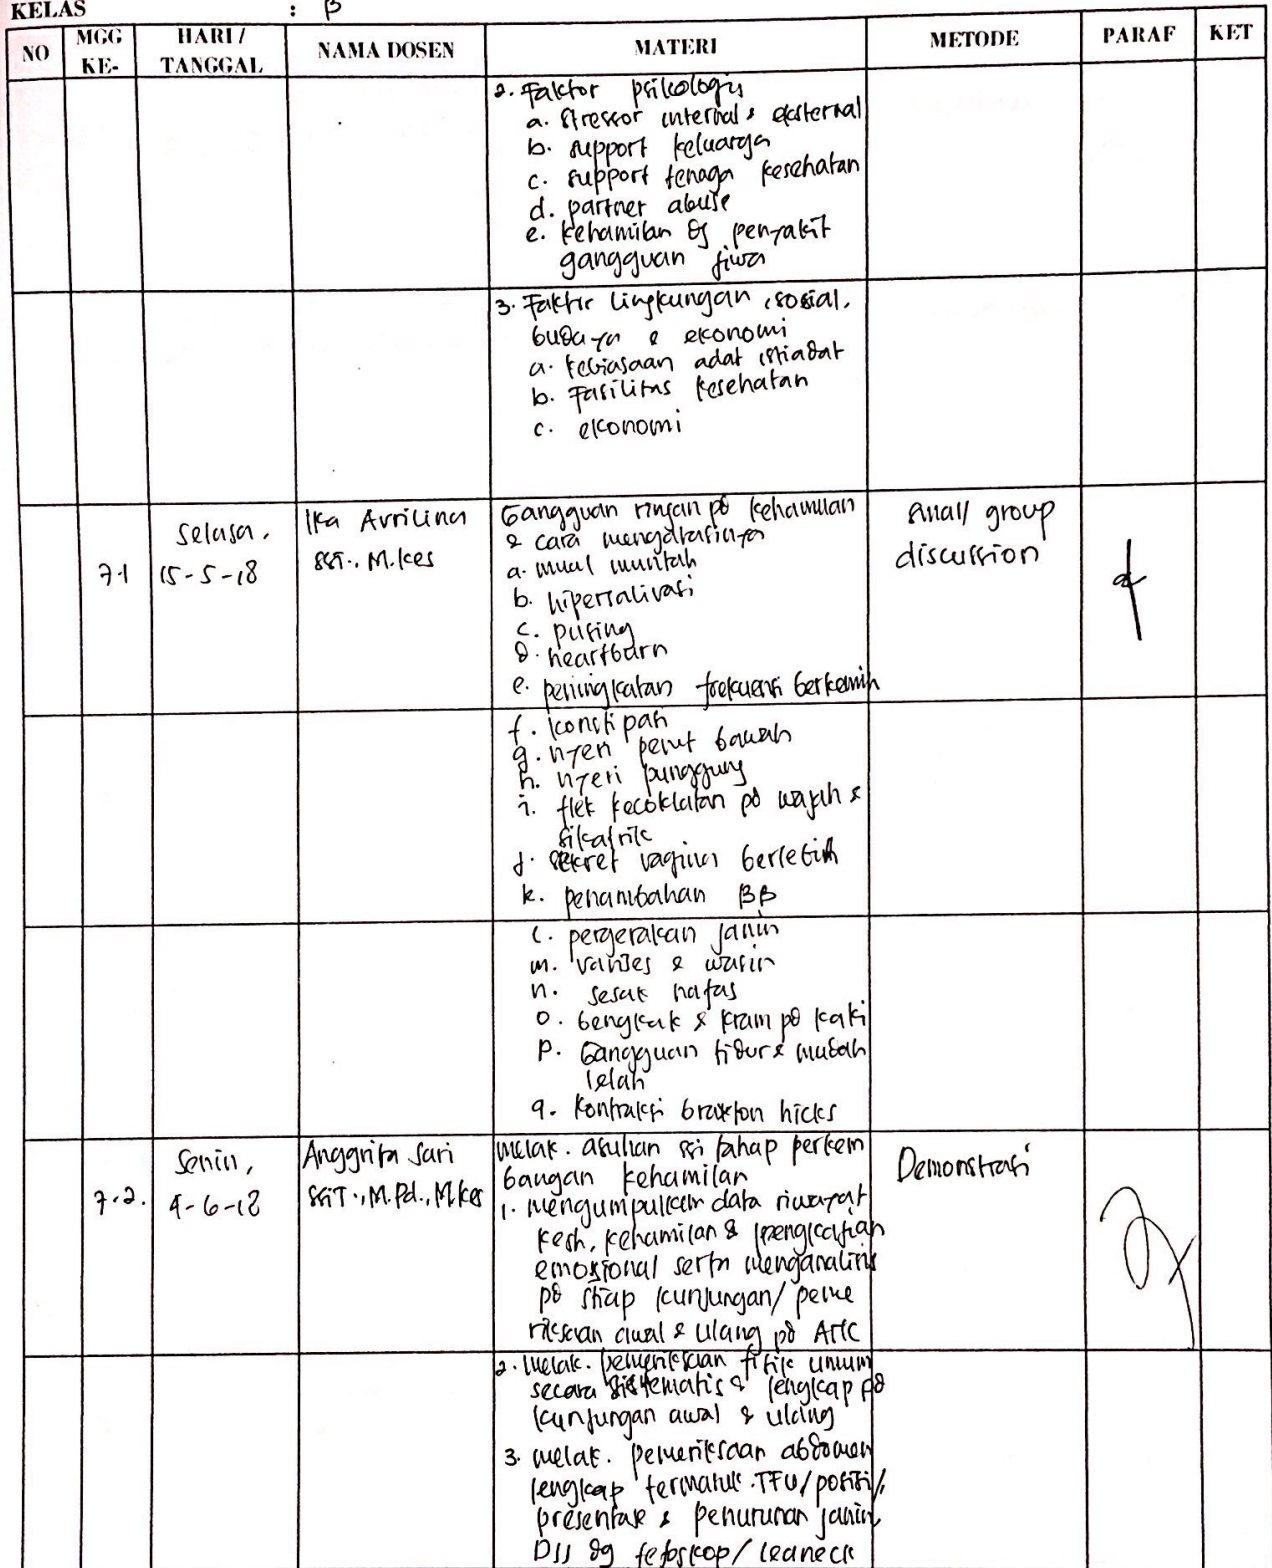 KELAS : B
NO MGG KE- HARI / TANGGAL NAMA DOSEN MATERI METODE PARAF KET
2. Faktor psikologis
a. Stressor internal & eksternal
b. support keluarga
c. support tenaga kesehatan
d. partner abuse
e. kehamilan dg penyakit
gangguan jiwa
3. Faktor lingkungan, sosial,
budaya & ekonomi
a. kebiasaan adat istiadat
b. Fasilitas kesehatan
c. ekonomi
7.1
Selasa,
15-5-18
Ika Avrilina
SST., M.Kes
Gangguan ringan pd kehamilan
& cara mengatasinya
a. mual muntah
b. hipersalivasi
c. pusing
d. heartburn
e. peningkatan frekuensi berkemih
Small group
discussion
f. konstipasi
g. nyeri perut bawah
h. nyeri punggung
i. flek kecoklatan pd wajah &
sikatrik
j. sekret vagina berlebih
k. penambahan BB
l. pergerakan janin
m. varises & wasir
n. sesak nafas
o. bengkak & kram pd kaki
p. Gangguan tidur & mudah
lelah
q. Kontraksi braxton hicks
7.2.
Senin,
4-6-18
Anggrita Sari
SSiT., M.Pd., M.Kes
melak. asuhan ssi tahap perkem
bangan kehamilan
1. mengumpulkan data riwayat
kesh, kehamilan & pengkajian
emosional serta menganalisis
pd stiap kunjungan/ peme
riksaan awal & ulang pd ANC
Demonstrasi
2. melak. pemeriksaan fisik umum
secara sistematis & lengkap pd
kunjungan awal & ulang
3. melak. pemeriksaan abdomen
lengkap termasuk TFU/posisi/,
presentase & penurunan janin,
DJJ dg fetoskop/ leaneck